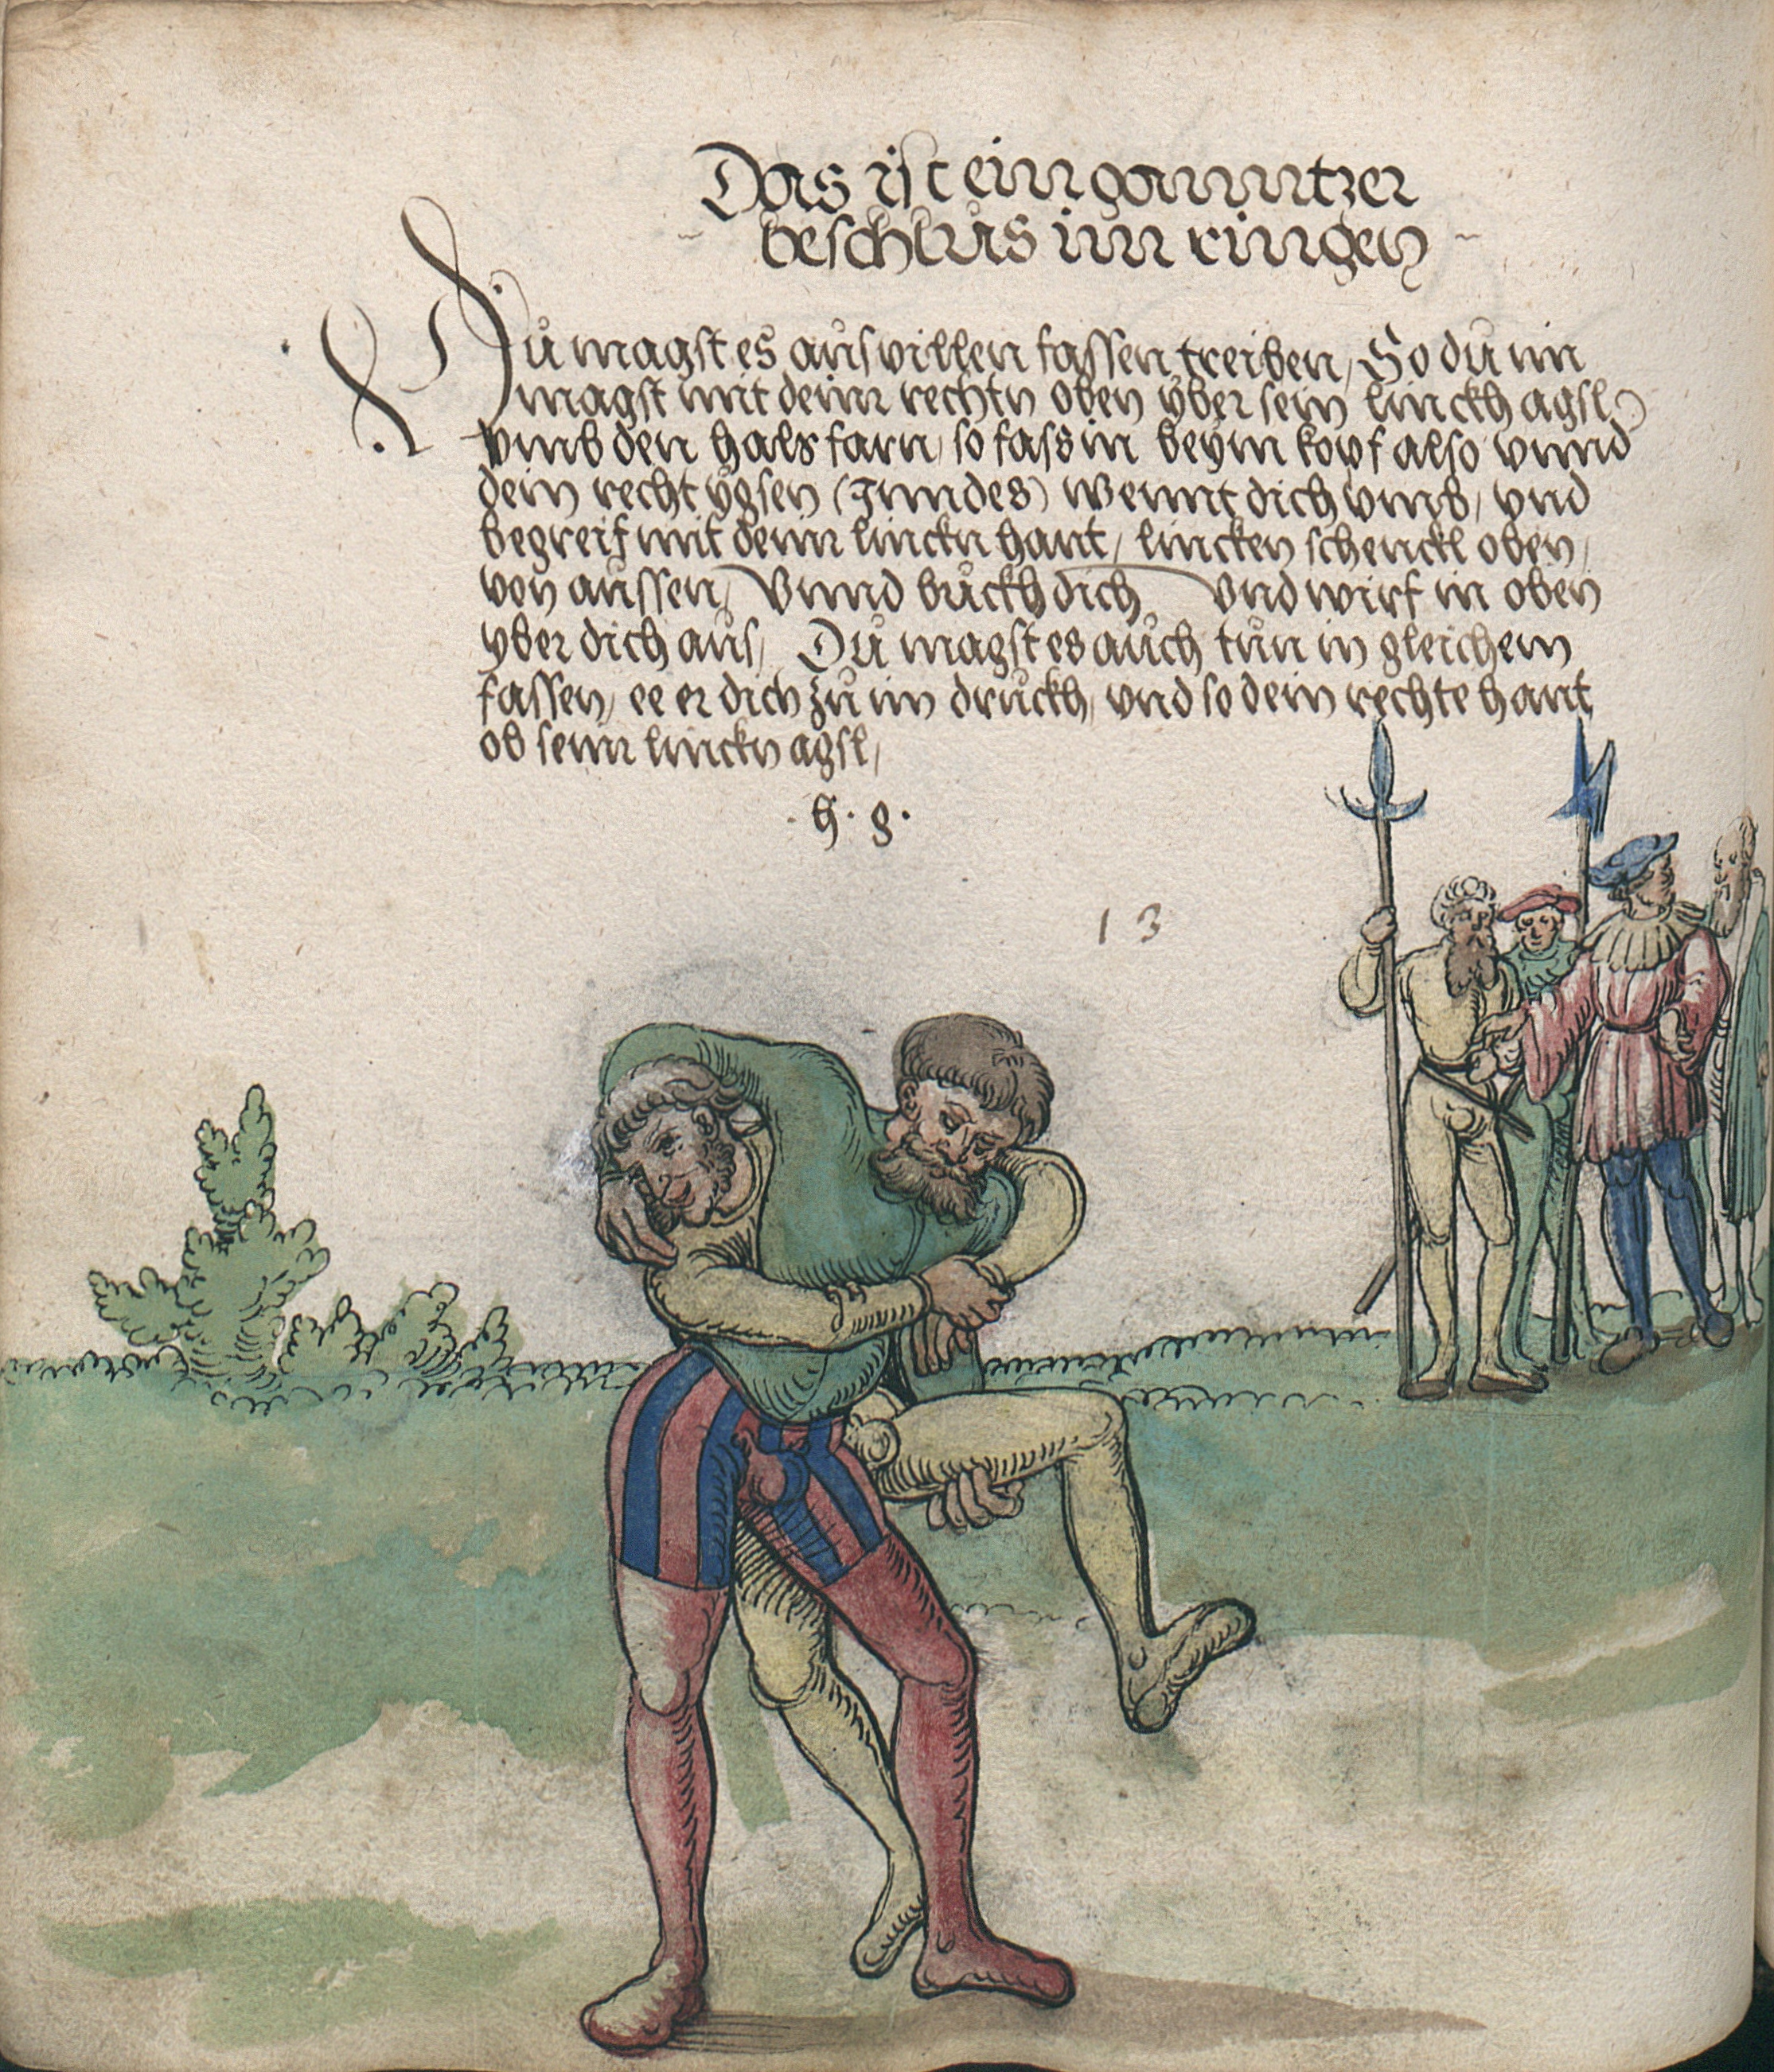 Das ist ein ganntzer
~ beschlus im ringen ~
Dŭ magst es aŭs villen fassen treiben, So dŭ im
magst mit deinr rechtn oben ÿber sein linckh agsl
vmb den hals farn, so fass in beÿm kopf also vnnd
dein recht ÿgsen (Inndes) wennt dich vmb, vnd
begreif mit deinr linckn hant, lincken schenckl oben,
von aŭssen, Vnnd bŭckh dich vnd wirf in oben
yber dich aŭs, Dŭ magst es aŭch tŭn in gleichem
fassen, ee er dich zŭ im drŭckh, vnd so dein rechte hant
ob seinr linckn agsl,
. h . g .
13